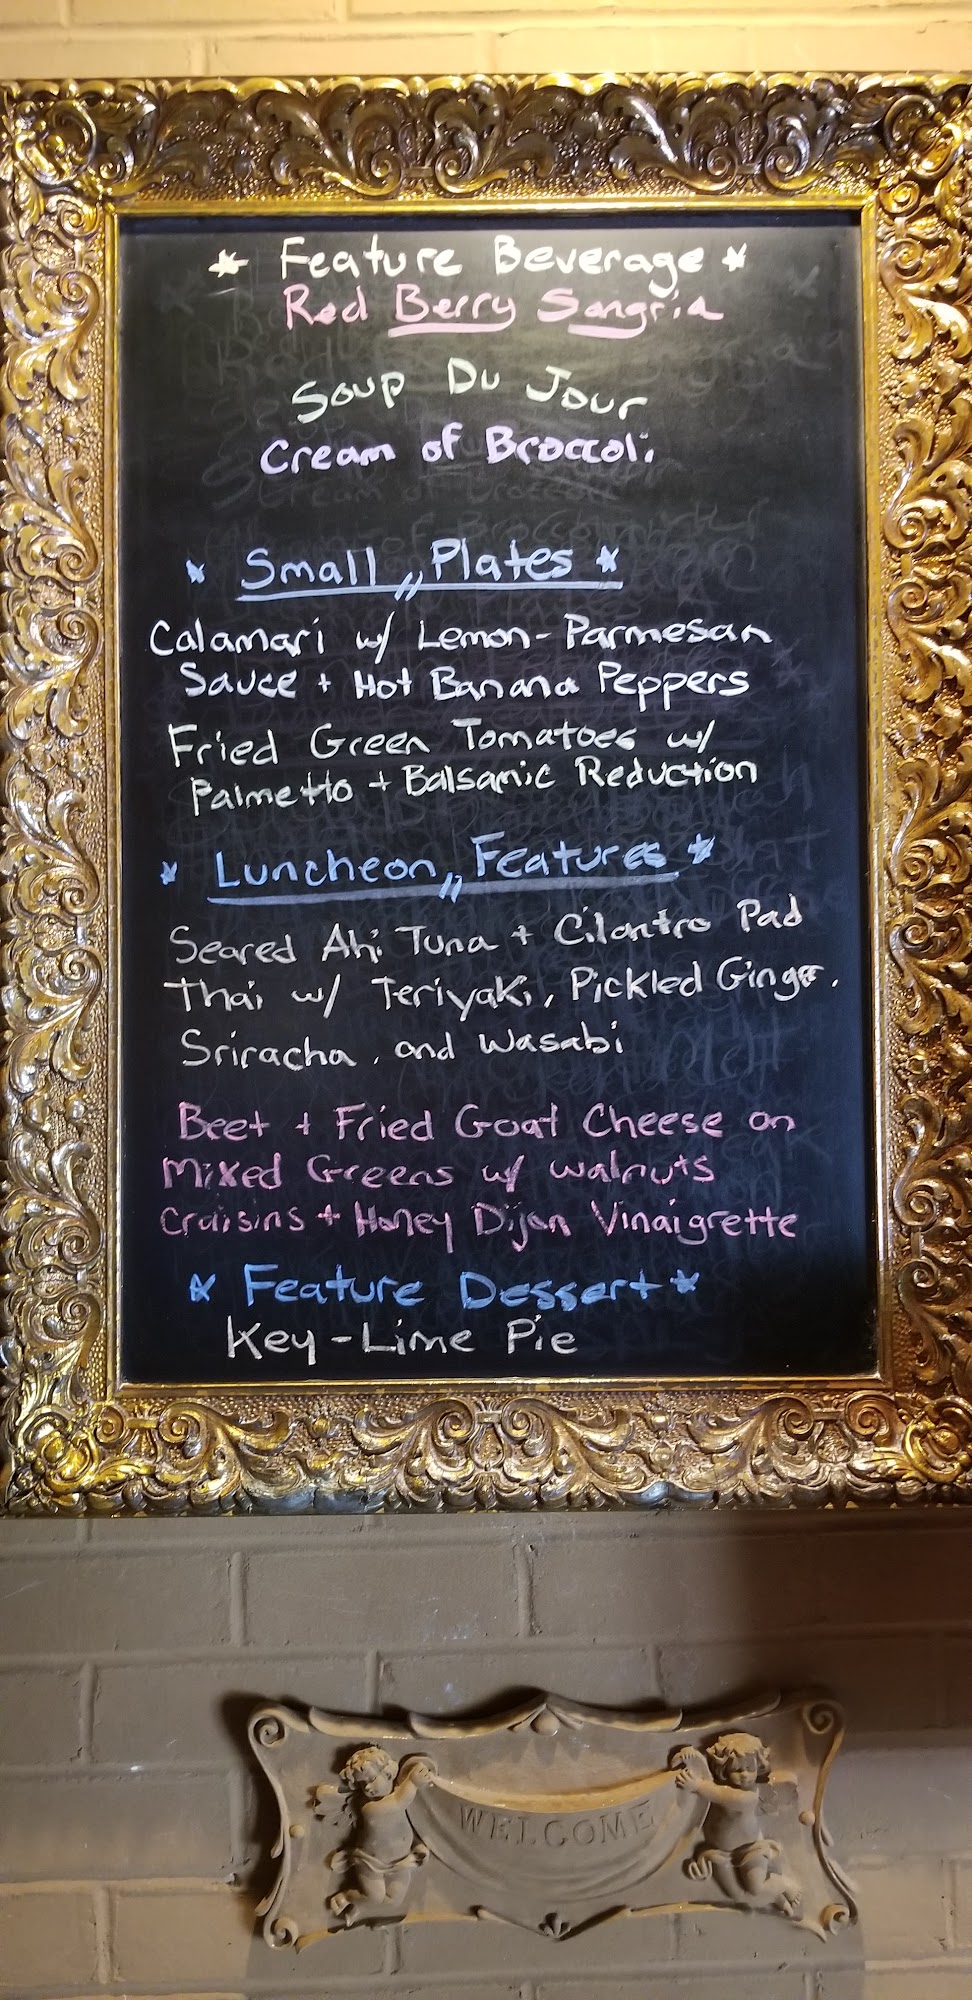 * Feature Beverage *
Red Berry Sangria
Soup Du Jour
Cream of Broccoli
* Small Plates *
Calamari w/ Lemon-Parmesan
Sauce + Hot Banana Peppers
Fried Green Tomatoes w/
Palmetto + Balsamic Reduction
* Luncheon Features *
Seared Ahi Tuna + Cilantro Pad
Thai w/ Teriyaki, Pickled Ginger,
Sriracha, and Wasabi
Beet + Fried Goat Cheese on
Mixed Greens w/ walnuts
Craisins + Honey Dijon Vinaigrette
* Feature Dessert *
Key-Lime Pie
WELCOME